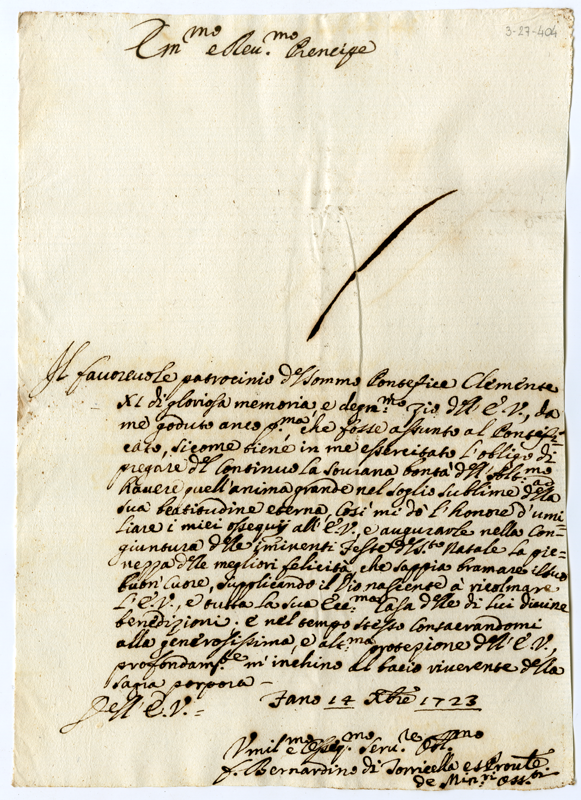 3-27-404
Em.mo e Reu.mo Prencipe
Il fauoreuole patrocinio del Sommo Pontefice Clemente
XI di gloriosa memoria, e degn.mo zio dell'E.V., da
me goduto anco p.ma che fosse assunto al Pontefi-
cato, sicome tiene in me essercitato l'obligo di
pregare del continuo la sourana bontà dell' ad
hauere quell'anima grande nel soglio sublime della
sua beatitudine eterna, così mi dò l'honore d'umi-
liare i miei ossequij all'E.V., e augurarle nella Con-
giuntura delle iminenti feste del S.to Natale la pie-
nezza delle megliori felicità, che sappia bramare il suo
buon cuore, supplicando il Dio nascente à ricolmare
L'E.V., e tutta la sua Ecc.ma Casa delle di lui diuine
benedizioni. e nel tempo stesso consacrandomi
alla generosissima, e alt.ma protezione dell'E.V.,
profondam.te m'inchino al bacio riuerente della
sacra porpora -
Dell'E.V.=
Fano 14 Xbre 1723
Vmil.mo e Osseq.mo Seru.re Obl.mo
f. Bernardino di Torricella exProu.le
de Min.ri Oss.ti